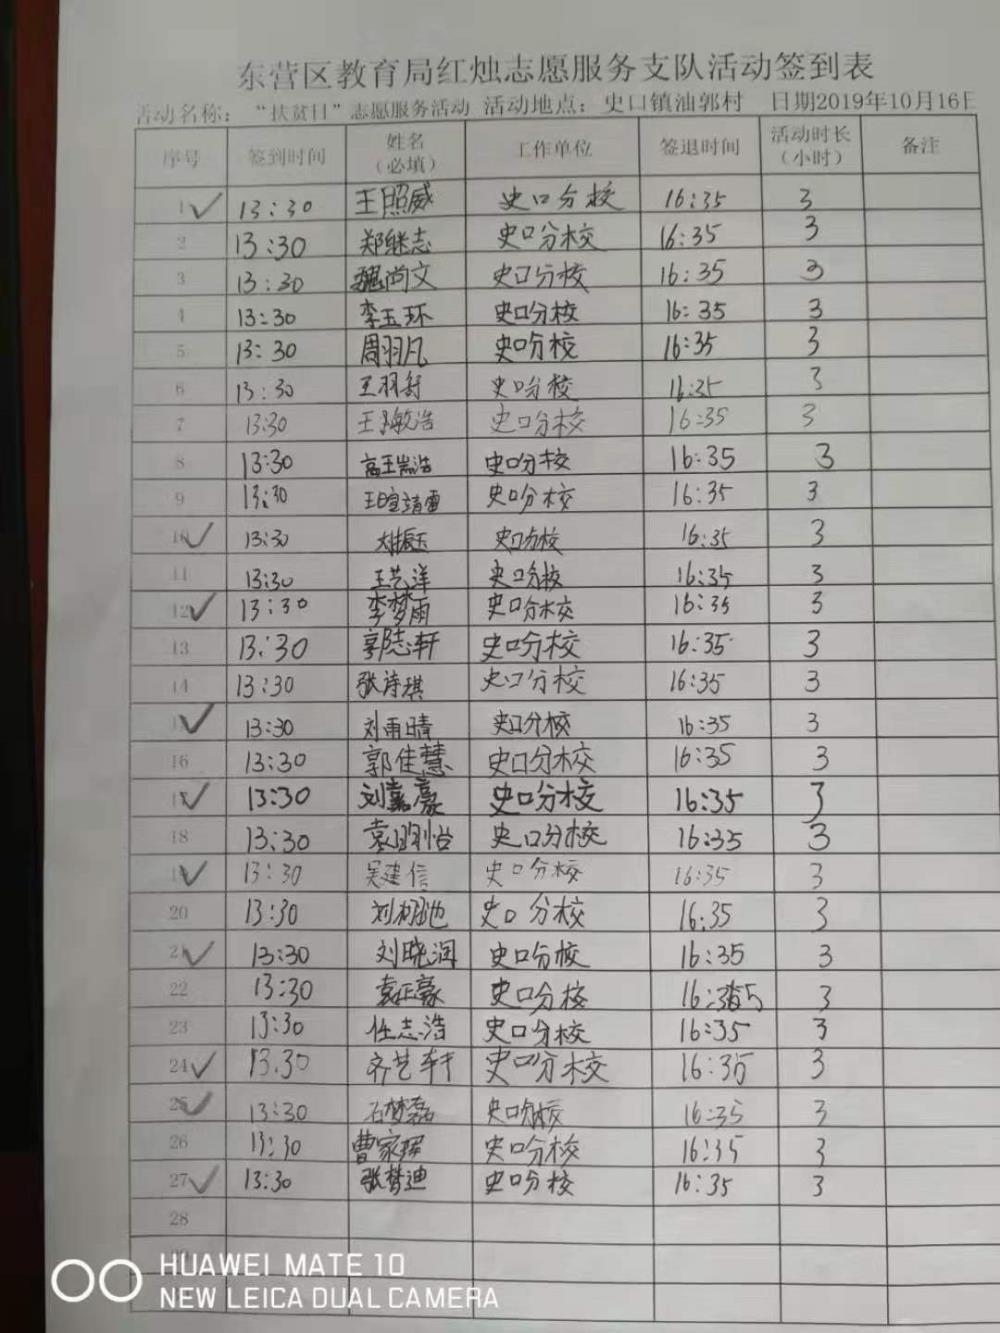 东营区教育局红烛志愿服务支队活动签到表
活动名称：“扶贫日”志愿服务活动 活动地点：史口镇油郭村 日期2019年10月16日
序号 签到时间 姓名（必填） 工作单位 签退时间 活动时长（小时） 备注
1 13:30 王照威 史口分校 16:35 3
2 13:30 郑继志 史口分校 16:35 3
3 13:30 魏尚文 史口分校 16:35 3
4 13:30 李玉环 史口分校 16:35 3
5 13:30 周羽凡 史口分校 16:35 3
6 13:30 王羽舒 史口分校 16:35 3
7 13:30 王敏浩 史口分校 16:35 3
8 13:30 高王嵩浩 史口分校 16:35 3
9 13:30 王暄靖雷 史口分校 16:35 3
10 13:30 史口分校 16:35 3
11 13:30 王艺洋 史口分校 16:35 3
12 13:30 李梦雨 史口分校 16:35 3
13 13:30 郭志轩 史口分校 16:35 3
14 13:30 张诗琪 史口分校 16:35 3
15 13:30 刘雨晴 史口分校 16:35 3
16 13:30 郭佳慧 史口分校 16:35 3
17 13:30 刘嘉豪 史口分校 16:35 3
18 13:30 袁明怡 史口分校 16:35 3
19 13:30 吴建信 史口分校 16:35 3
20 13:30 刘栩池 史口分校 16:35 3
21 13:30 刘晓润 史口分校 16:35 3
22 13:30 袁正豪 史口分校 16:35 3
23 13:30 任志浩 史口分校 16:35 3
24 13.30 齐艺轩 史口分校 16:35 3
25 13:30 石梦磊 史口分校 16:35 3
26 13:30 曹家珲 史口分校 16:35 3
27 13:30 张梦迪 史口分校 16:35 3
28
HUAWEI MATE 10
NEW LEICA DUAL CAMERA